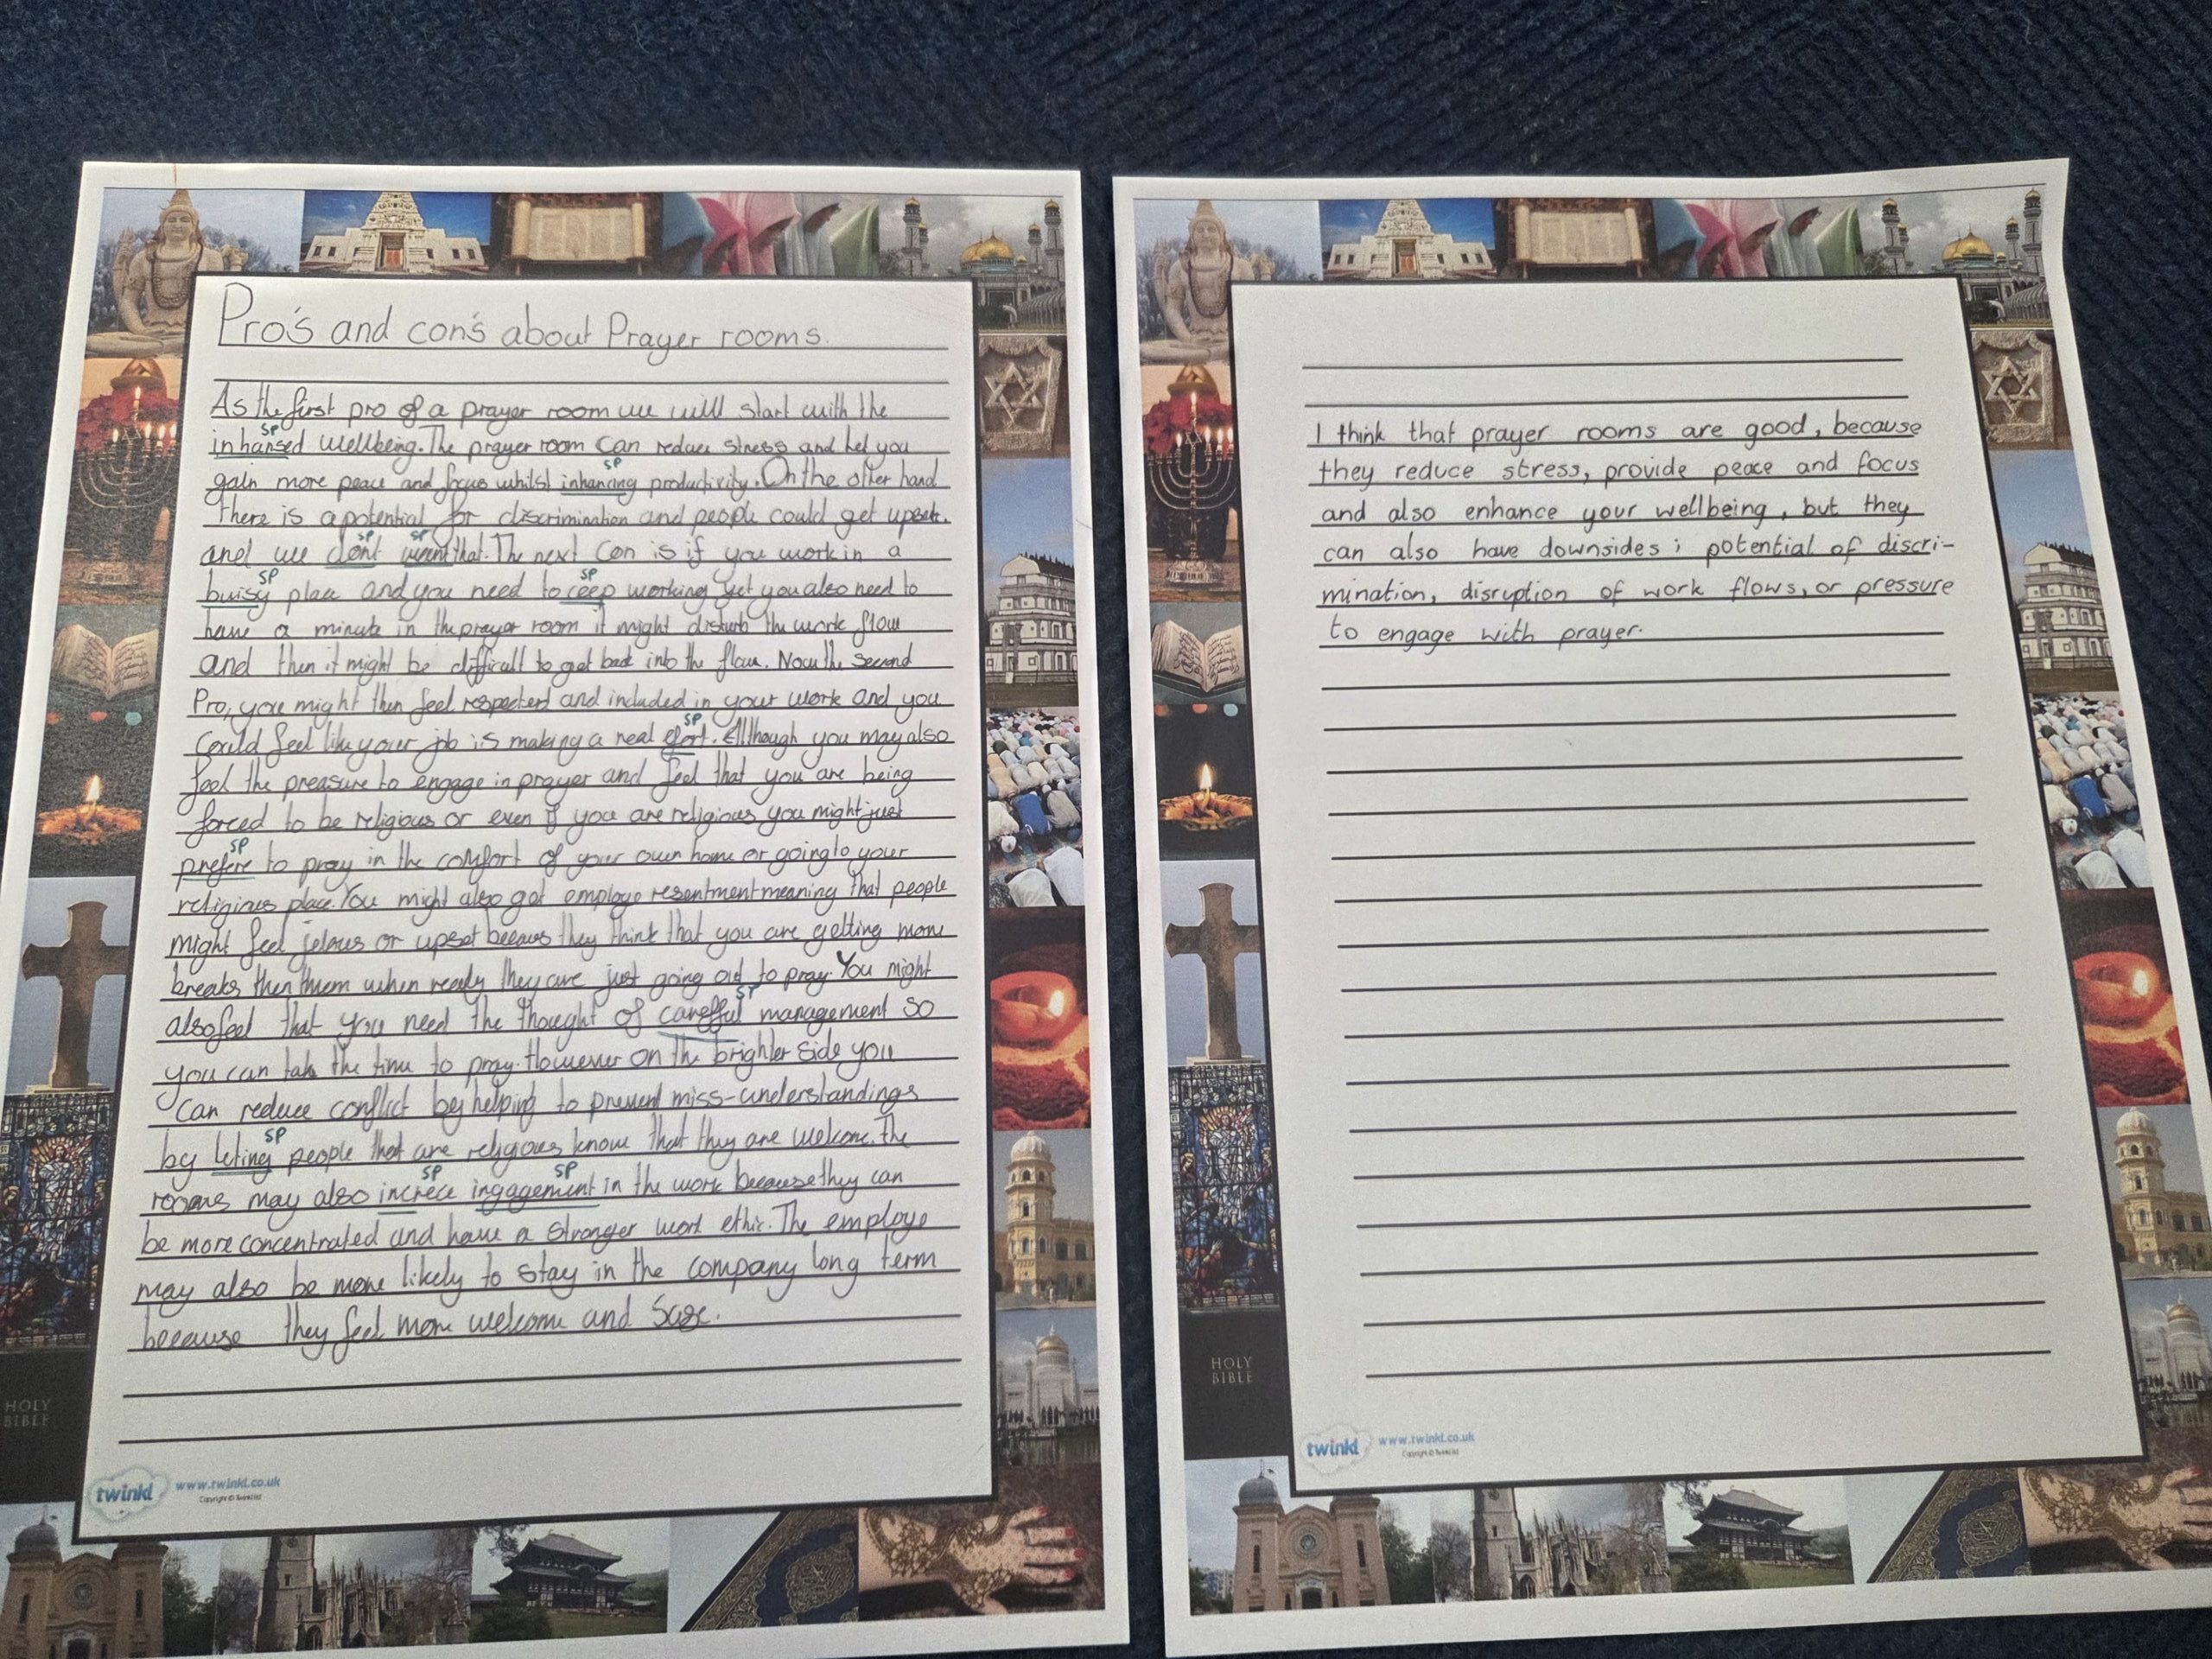 Pro's and con's about Prayer rooms.
As the first pro of a prayer room we will start with the
SP
inhansed wellbeing. The prayer room can reduce stress and hel you
SP
gain more peace and focus whilst inhancing productivity. On the other hand
there is a potential for discrimination and people could get upset.
SP SP
and we dont that. The next con is if you work in a
SP SP
buisy place and you need to ceep working yet you also need to
have a minute in the prayer room it might disturb the work flow
and then it might be difficult to get back into the flow. Now the second
Pro, you might then feel respected and included in your work and you
SP
could feel like your job is making a real efort. Although you may also
feel the preasure to engage in prayer and feel that you are being
forced to be religious or even if you are religious you might just
SP
prefere to pray in the comfort of your own home or going to your
religious place. You might also get employe resentment meaning that people
might feel jelous or upset becaus they think that you are getting more
breaks then them when realy they are just going out to pray. You might
SP
also feel that you need the thought of careffull management so
you can take the time to pray. However on the brighter side you
can reduce conflict by helping to prevent miss-understandings
SP
by leting people that are religious know that they are welcome. The
SP SP
rooms may also increce ingagement in the work because they can
be more concentrated and have a stronger work ethic. The employe
may also be more likely to stay in the company long term
because they feel more welcome and
twinkl www.twinkl.co.uk
Copyright © Twinkl ltd
HOLY
BIBLE
I think that prayer rooms are good, because
they reduce stress, provide peace and focus
and also enhance your wellbeing, but they
can also have downsides; potential of discri-
mination, disruption of work flows, or pressure
to engage with prayer.
twinkl www.twinkl.co.uk
Copyright © Twinkl ltd
HOLY
BIBLE